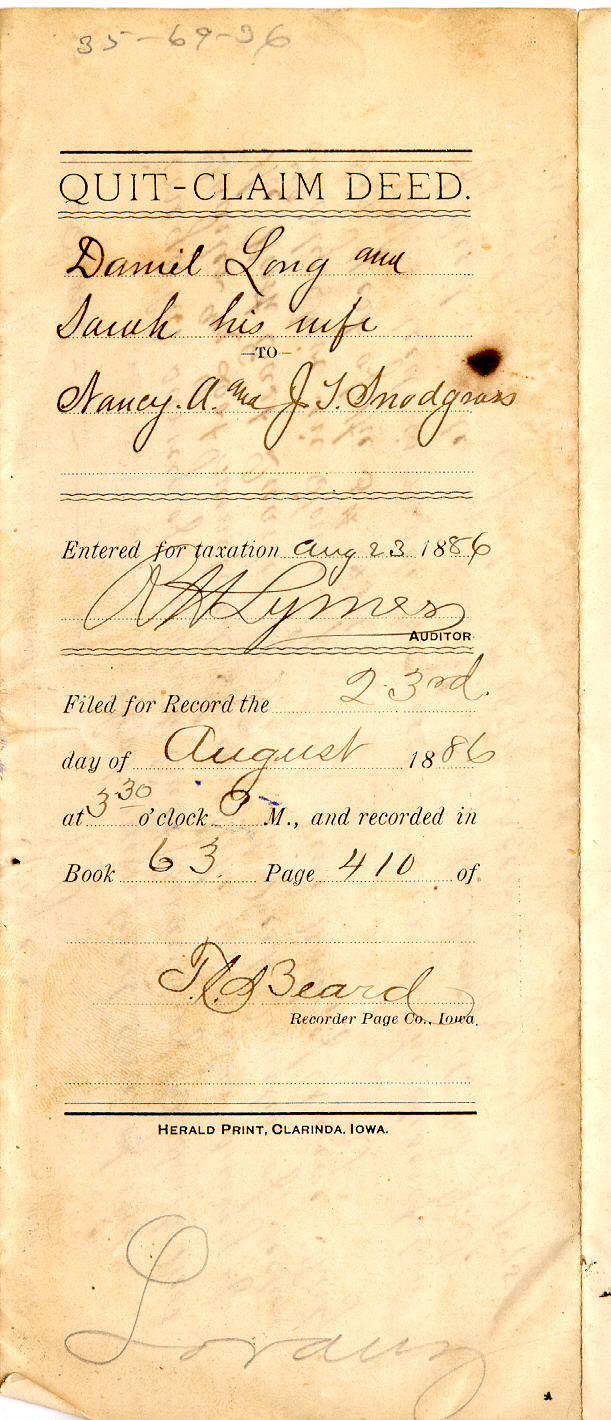 35-69-36
QUIT-CLAIM DEED.
Daniel Long and
Sarah his wife
—TO—
Nancy. A. and J. T. Snodgrass
Entered for taxation Aug 23 1886
AUDITOR
Filed for Record the 23rd.
day of August 1886
at 3 30 o'clock P M., and recorded in
Book 63 Page 410 of
Beard
Recorder Page Co., Iowa.
HERALD PRINT, CLARINDA, IOWA.